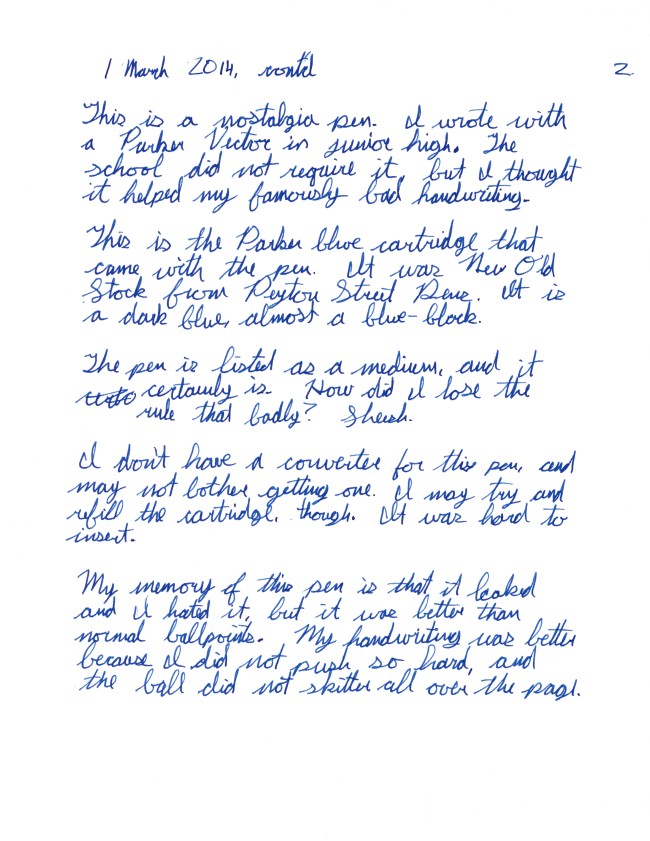 1 March 2014, cont'd
2
This is a nostalgia pen. I wrote with
a Parker Vector in junior high. The
school did not require it, but I thought
it helped my famously bad handwriting.
This is the Parker blue cartridge that
came with the pen. It was New Old
Stock from Peyton Street Pens. It is
a dark blue, almost a blue-black.
The pen is listed as a medium, and it
certainly is. How did I lose the
rule that badly? Sheesh.
I don't have a converter for this pen, and
may not bother getting one. I may try and
refill the cartridge, though. It was hard to
insert.
My memory of this pen is that it leaked
and I hated it, but it was better than
normal ballpoints. My handwriting was better
because I did not push so hard, and
the ball did not skitter all over the page.